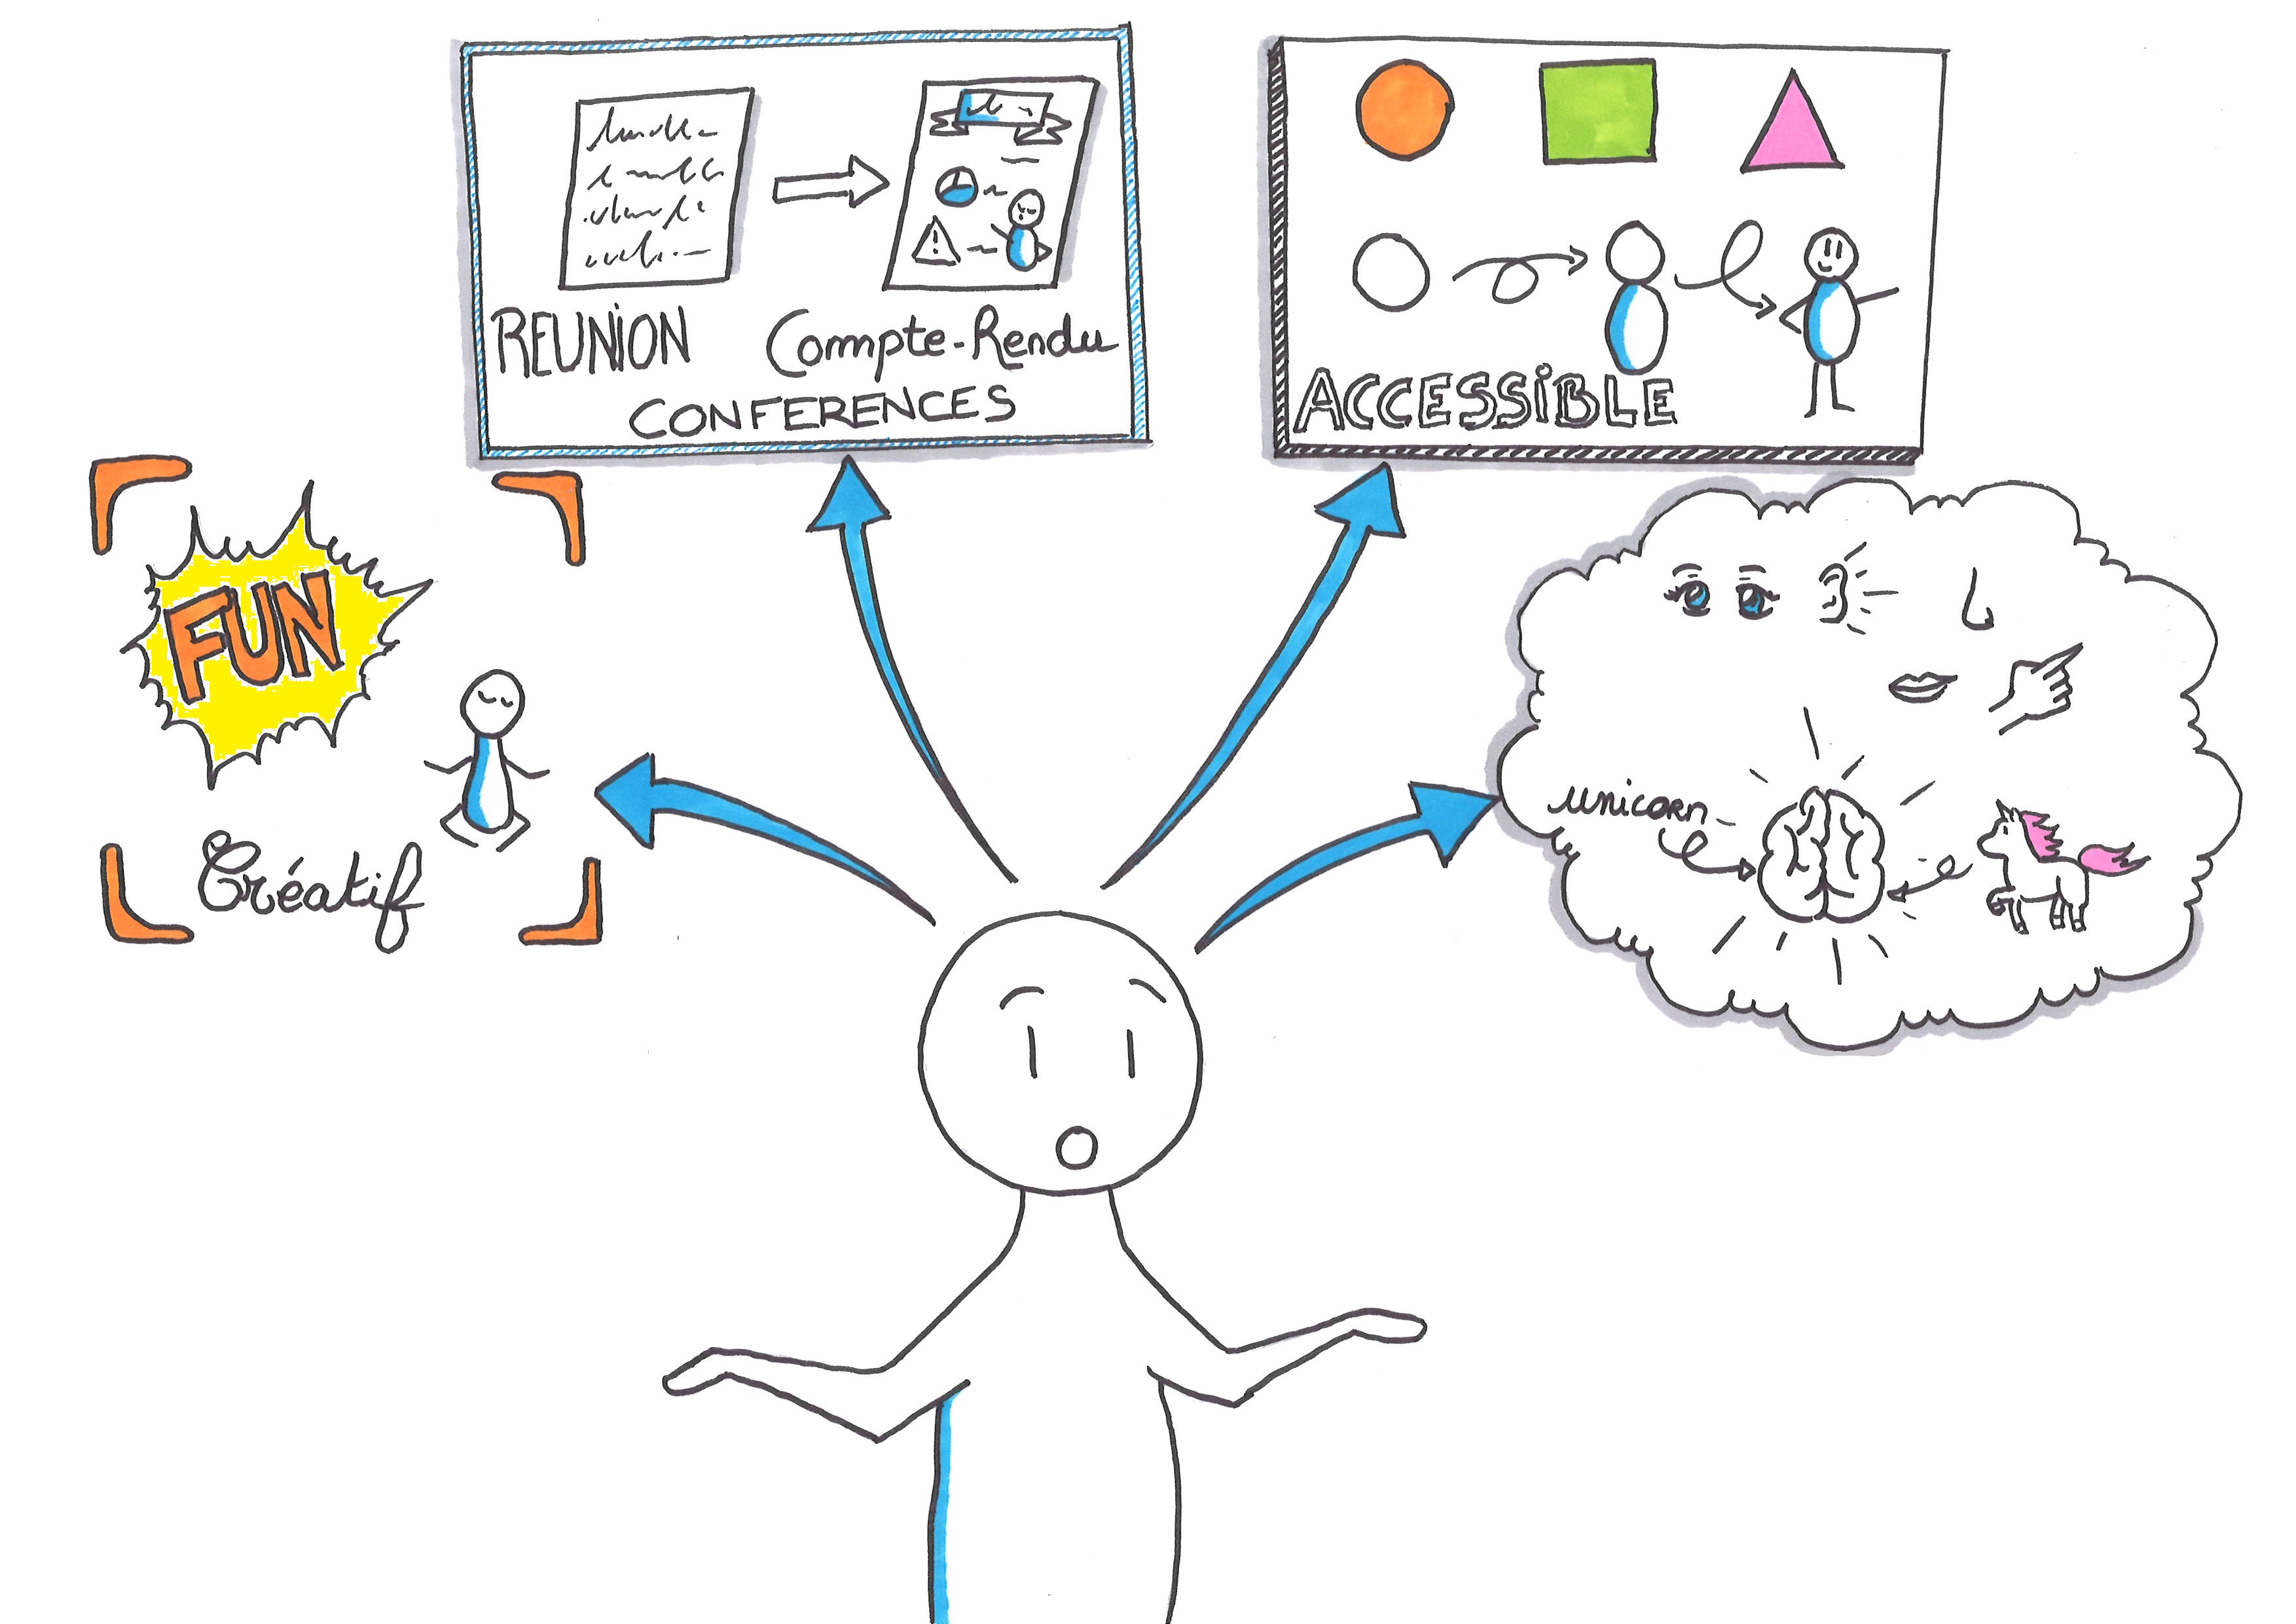 REUNION
Compte-Rendu
CONFERENCES
ACCESSIBLE
FUN
Créatif
unicorn